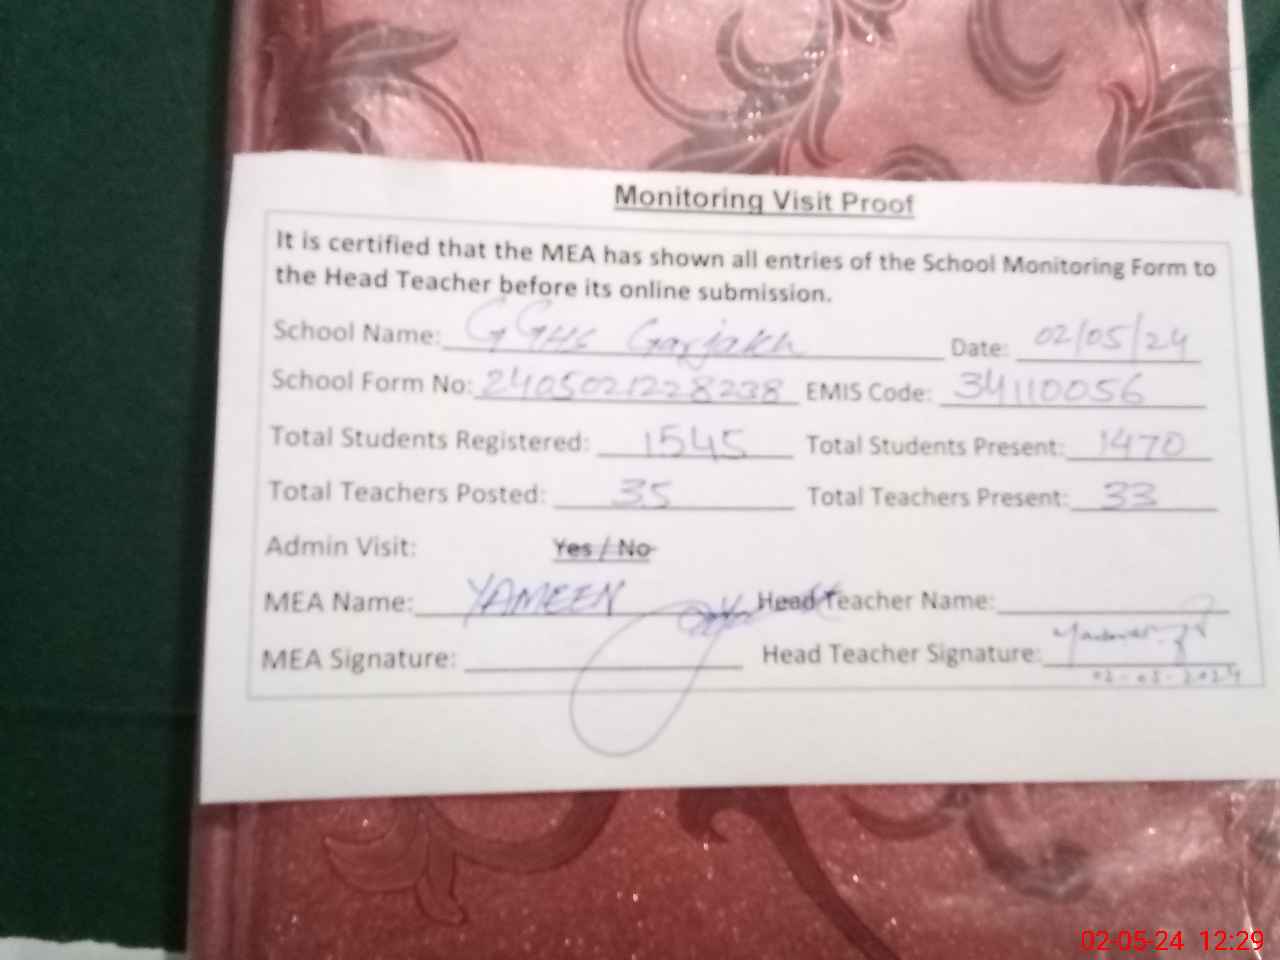 Monitoring Visit Proof
It is certified that the MEA has shown all entries of the School Monitoring Form to
the Head Teacher before its online submission.
School Name: GGHS Garjakh Date: 02/05/24
School Form No: 240502122 8238 EMIS Code: 34110056
Total Students Registered: 1545 Total Students Present: 1470
Total Teachers Posted: 35 Total Teachers Present: 33
Admin Visit: Yes / No
MEA Name: YAMEEN Head Teacher Name:
MEA Signature: Head Teacher Signature:
02-05-2024
02-05-24 12:29